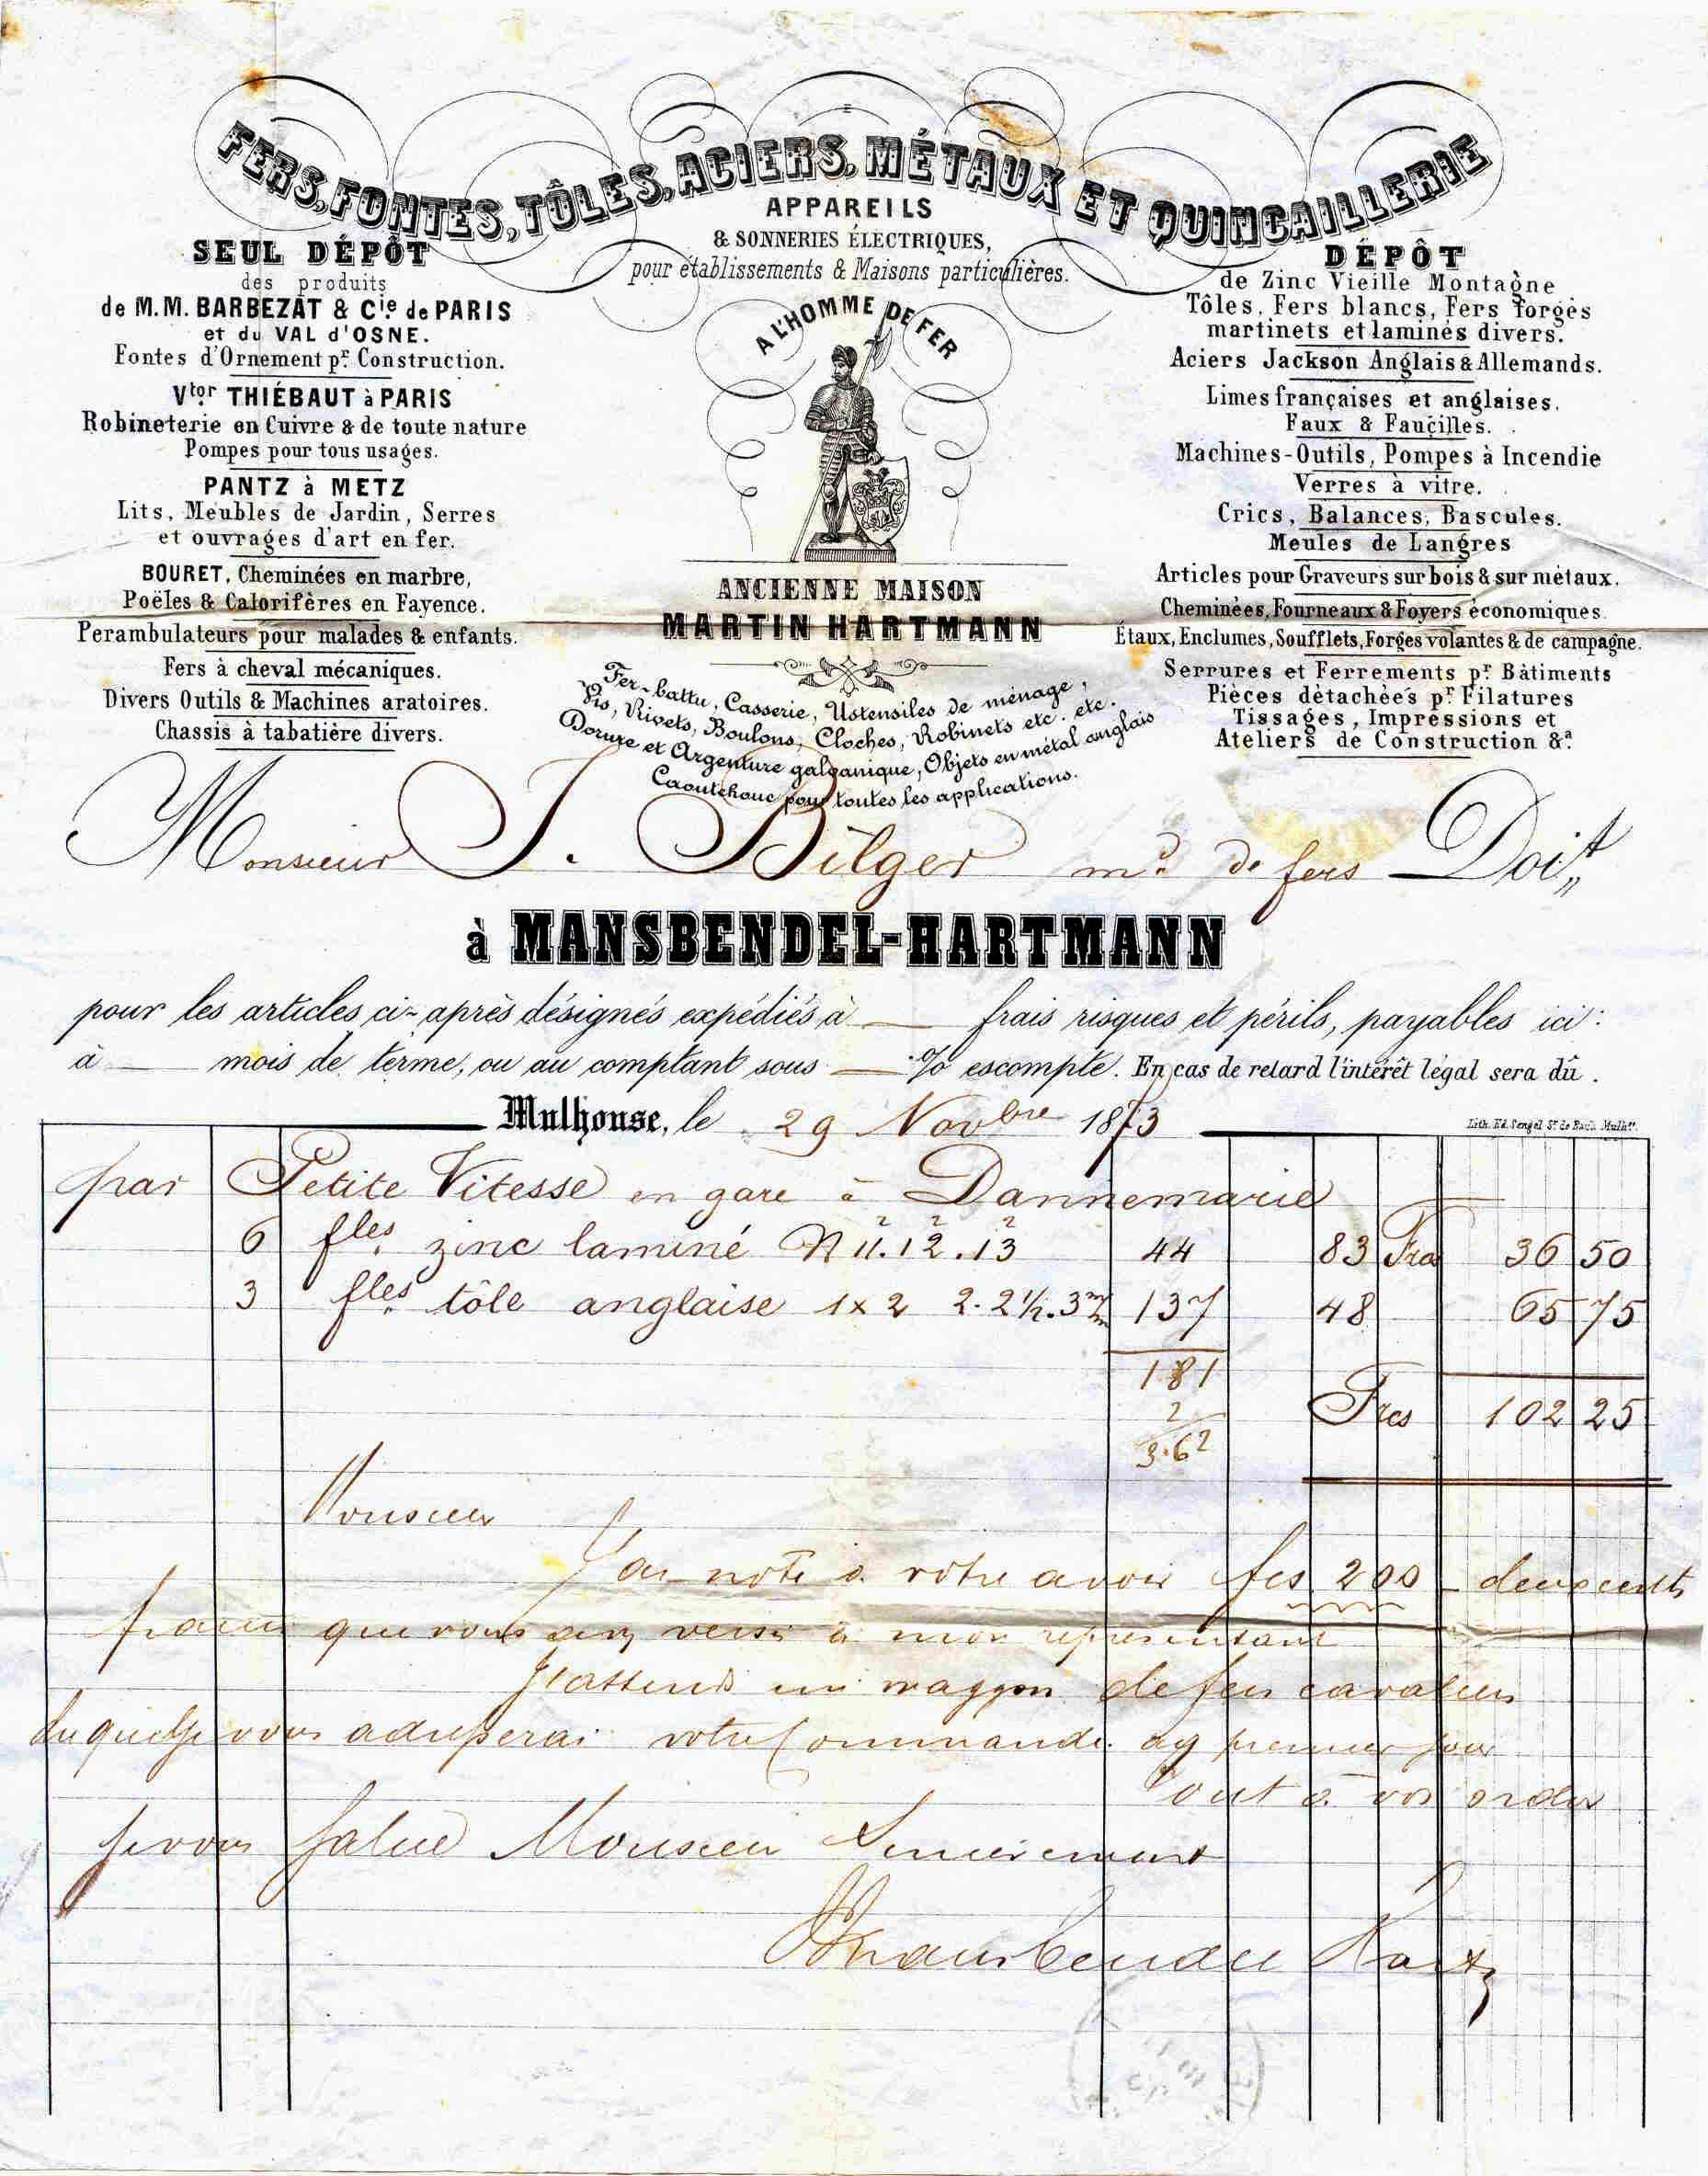 FERS, FONTES, TÔLES, ACIERS, MÉTAUX ET QUINCAILLERIE
APPAREILS
& SONNERIES ÉLECTRIQUES,
pour établissements & Maisons particulières.
A L'HOMME DE FER
ANCIENNE MAISON
MARTIN HARTMANN
Fer-battu, Casserie, Ustensiles de ménage,
Vis, Rivets, Boulons, Cloches, Robinets etc. etc.
Dorure et Argenture galvanique, Objets en métal anglais
Caoutchouc pour toutes les applications.
SEUL DÉPÔT
des produits
de M.M. BARBEZAT & Cie de PARIS
et du VAL d'OSNE.
Fontes d'Ornement pr Construction.
Vtor THIÉBAUT à PARIS
Robineterie en Cuivre & de toute nature
Pompes pour tous usages.
PANTZ à METZ
Lits, Meubles de Jardin, Serres
et ouvrages d'art en fer.
BOURET, Cheminées en marbre,
Poëles & Calorifères en Fayence.
Perambulateurs pour malades & enfants.
Fers à cheval mécaniques.
Divers Outils & Machines aratoires.
Chassis à tabatière divers.
DÉPÔT
de Zinc Vieille Montagne
Tôles, Fers blancs, Fers forgés
martinets et laminés divers.
Aciers Jackson Anglais & Allemands.
Limes françaises et anglaises.
Faux & Faucilles.
Machines-Outils, Pompes à Incendie
Verres à vitre.
Crics, Balances, Bascules.
Meules de Langres
Articles pour Graveurs sur bois & sur métaux.
Cheminées, Fourneaux & Foyers économiques.
Étaux, Enclumes, Soufflets, Forges volantes & de campagne.
Serrures et Ferrements pr Bâtiments
Pièces détachées pr Filatures
Tissages, Impressions et
Ateliers de Construction &a.
Monsieur J. Bilger md de fers Doit
à MANSBENDEL-HARTMANN
pour les articles ci-après désignés expédiés à — frais risques et périls, payables ici:
à — mois de terme, ou au comptant sous — % escompte. En cas de retard l'intérêt légal sera dû.
Mulhouse, le 29 Novbre 1873
par Petite Vitesse en gare à Dannemarie
6 flles zinc laminé N 11. 12. 13 44 83 Frs 36 50
2 2 2
3 flles tôle anglaise 1x2 2. 2½. 3 m/m 137 48 65 75
181
Frcs 102 25
2
3.62
Monsieur
J'ai noté à votre avoir fcs 200 — deux cents
francs que vous avez versé à mon représentant
J'attends un waggon de fers cavaliers
duquel je vous adresserai votre Commande au premier jour
Tout à vos ordres
je vous salue Monsieur Sincèrement
Mansbendel Hartm